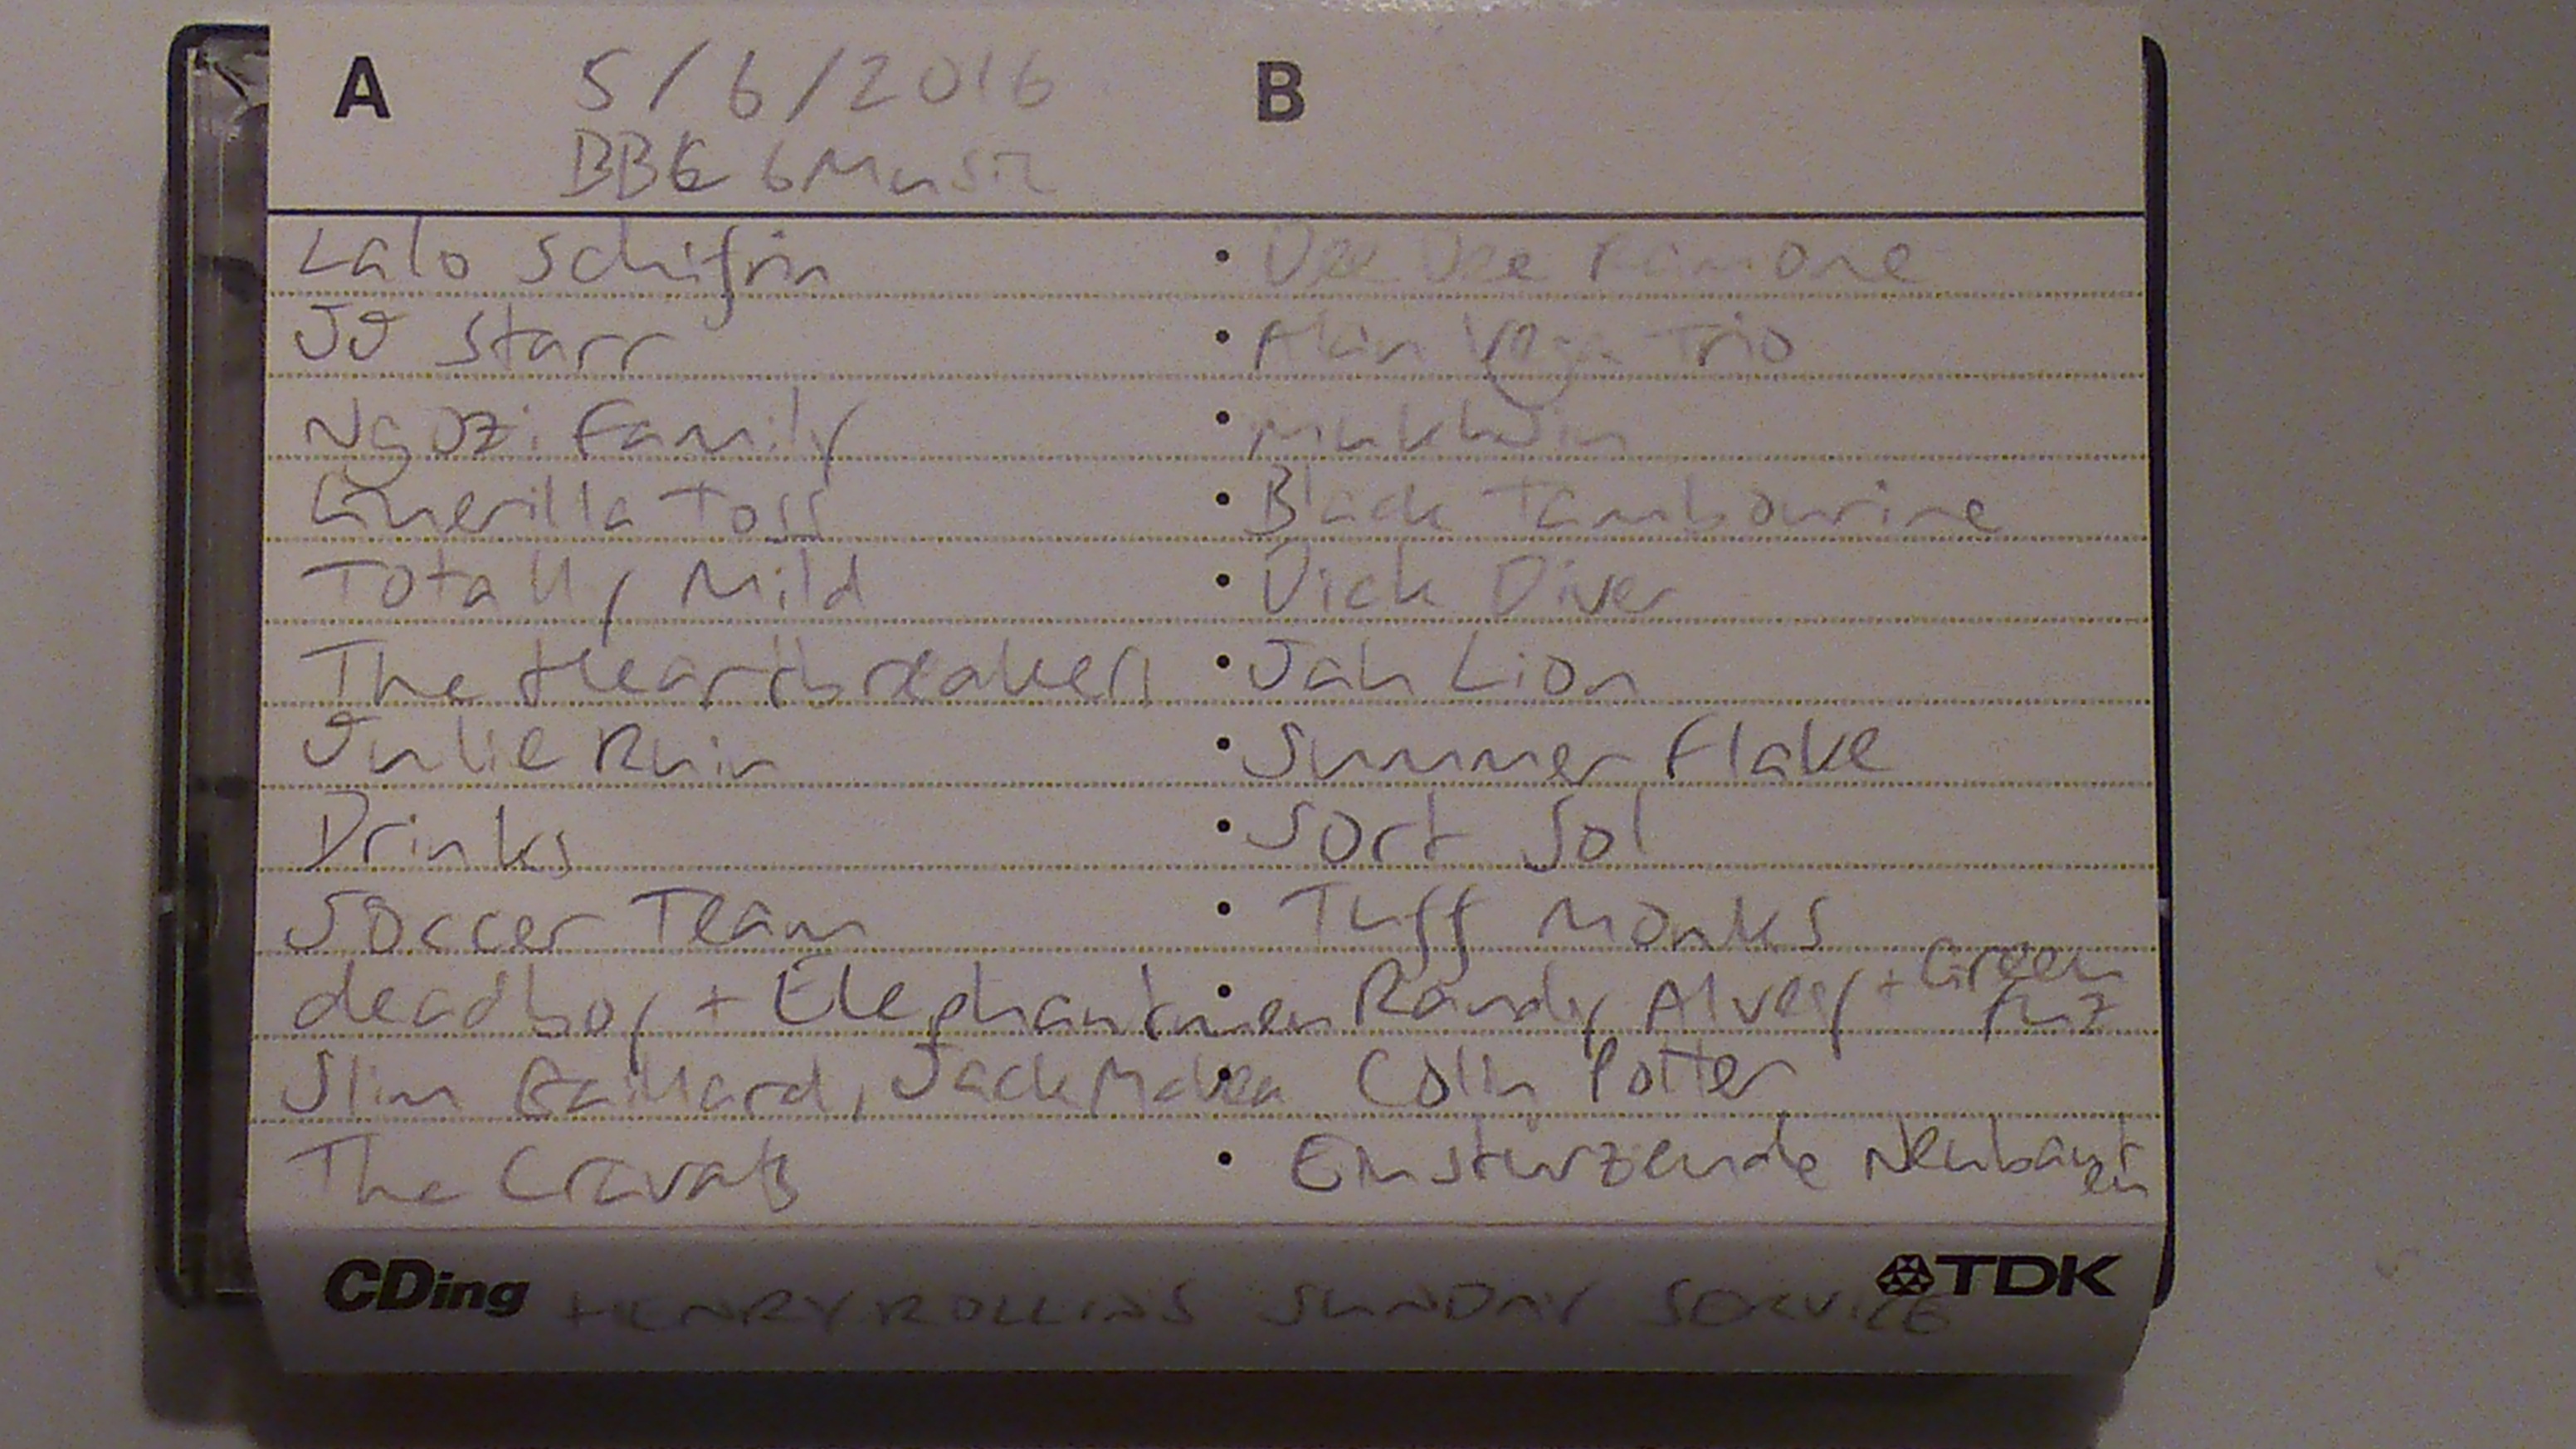 A 5/6/2016 B
BBC 6Music
Lalo Schifrin
• Dee Dee Ramone
JJ Starr
• Akin Vega Trio
Ngozi Family
•
Guerilla Toss
• Black Tambourine
Totally Mild
• Dick Diver
The Heartbreakers
• Jah Lion
Julie Ruin
• Summer Flake
Drinks
• Sort Sol
Soccer Team
• Tuff Monks
deadboy + Elephantmen
• Randy Alvey + Green Fuz
Slim Gaillard, Jack McVea
• Colin Potter
The Cravats
• Einsturzende Neubauten
CDing TDK
HENRY ROLLINS SUNDAY SERVICE